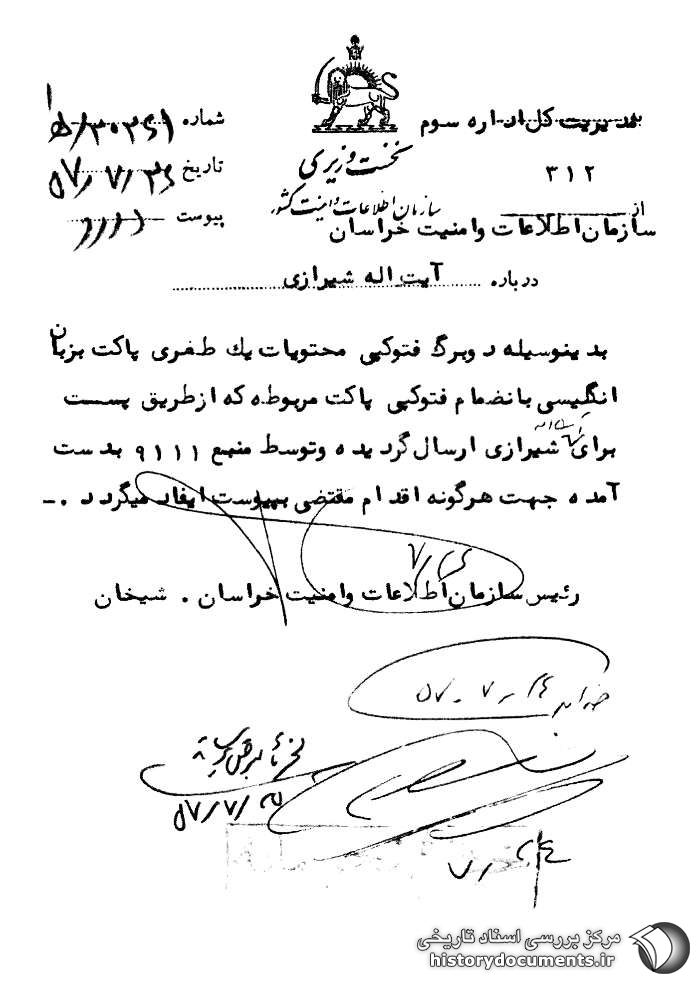 بمدیریت کل اداره سوم
۳۱۲
نخست وزیری
سازمان اطلاعات و امنیت کشور
از سازمان اطلاعات وامنیت خراسان
شماره
تاریخ
پیوست
درباره آیت اله شیرازی
بدینوسیله دوبرگ فتوکپی محتویات یك طغری پاکت بزبان
انگلیسی بانضمام فتوکپی پاکت مربوطه که از طریق پست
برای آیت اله شیرازی ارسال گردیده وتوسط منبع ۹۱۱۱ بدست
آمده جهت هرگونه اقدام مقتضی بپیوست ایفاد میگردد .-
رئیس سازمان اطلاعات وامنیت خراسان . شیخان
مرکز بررسی اسناد تاریخی
historydocuments.ir